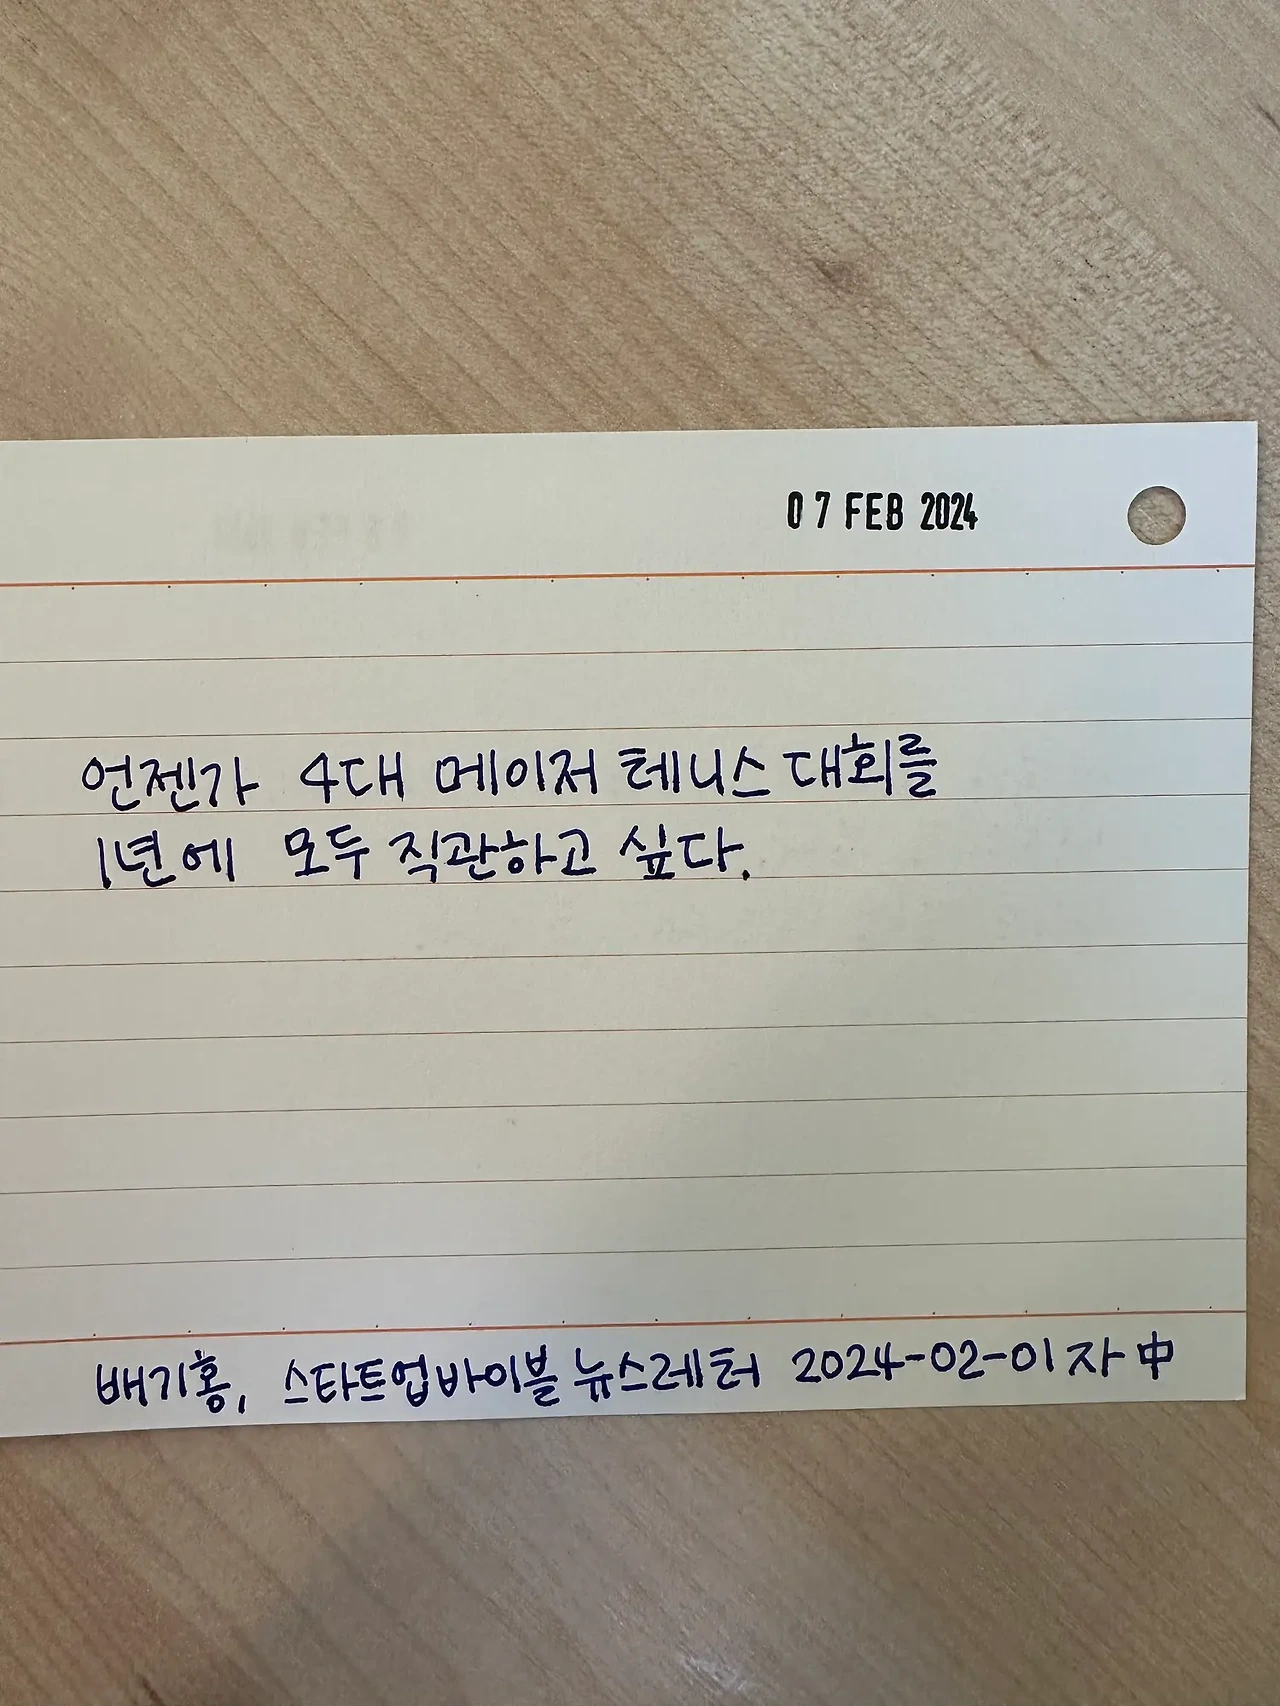 07 FEB 2024
언젠가 4대 메이저 테니스 대회를
1년에 모두 직관하고 싶다.
배기홍, 스타트업바이블 뉴스레터 2024-02-01자 中